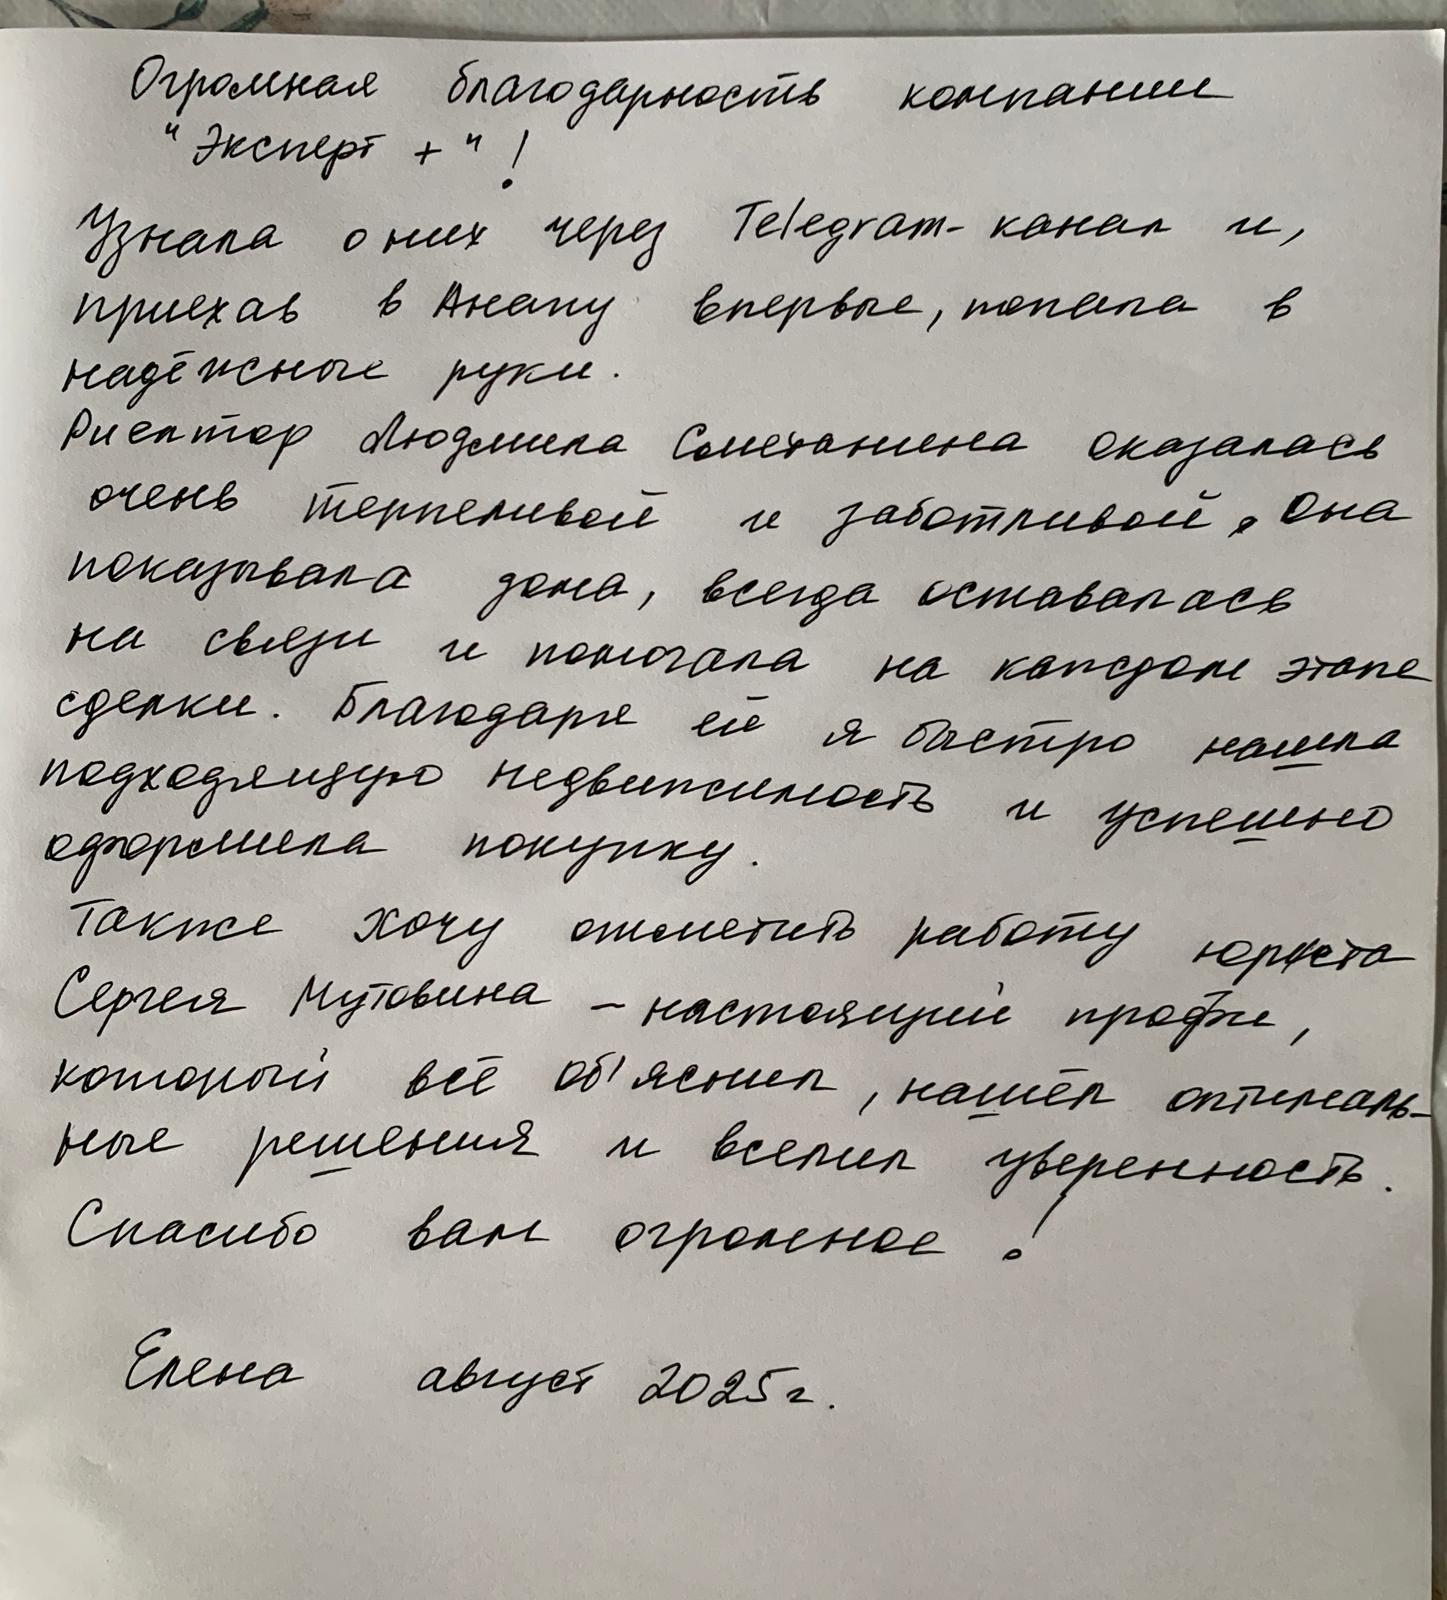 Огромная благодарность компании
"Эксперт +"!
Узнала о них через Telegram-канал и,
приехав в Анапу впервые, попала в
надёжные руки.
Риелтор Людмила Сметанина оказалась
очень терпеливой и заботливой. Она
показывала дома, всегда оставалась
на связи и помогала на каждом этапе
сделки. Благодаря ей я быстро нашла
подходящую недвижимость и успешно
оформила покупку.
Также хочу отметить работу юриста
Сергея Мутовина – настоящий профи,
который всё об'яснил, нашёл оптималь-
ные решения и вселил уверенность.
Спасибо вам огромное!
Елена август 2025г.